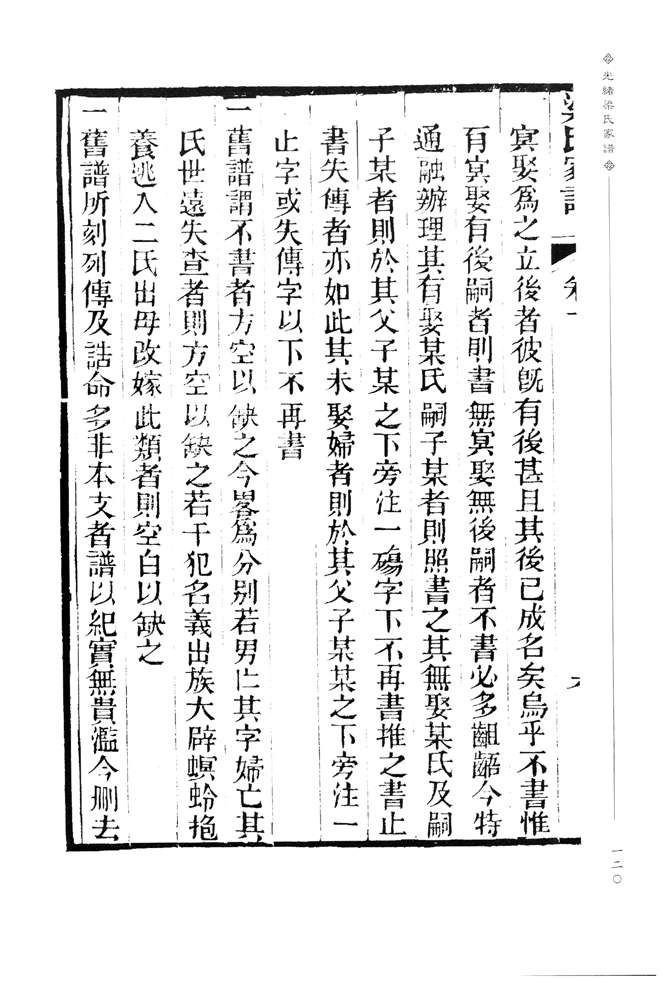 光緒梁氏家譜
一二〇
梁氏家譜 卷一
六
冥娶爲之立後者彼旣有後甚且其後已成名矣烏乎不書惟
有冥娶有後嗣者則書無冥娶無後嗣者不書必多齟齬今特
通融辦理其有娶某氏嗣子某者則照書之其無娶某氏及嗣
子某者則於其父子某之下旁注一殤字下不再書推之書止
書失傳者亦如此其未娶婦者則於其父子某某之下旁注一
止字或失傳字以下不再書
一舊譜謂不書者方空以缺之今畧爲分别若男亡其字婦亡其
氏世遠失查者則方空以缺之若干犯名義出族大辟螟蛉抱
養逃入二氏出母改嫁此類者則空白以缺之
一舊譜所刻列傳及誥命多非本支者譜以紀實無貴濫今刪去